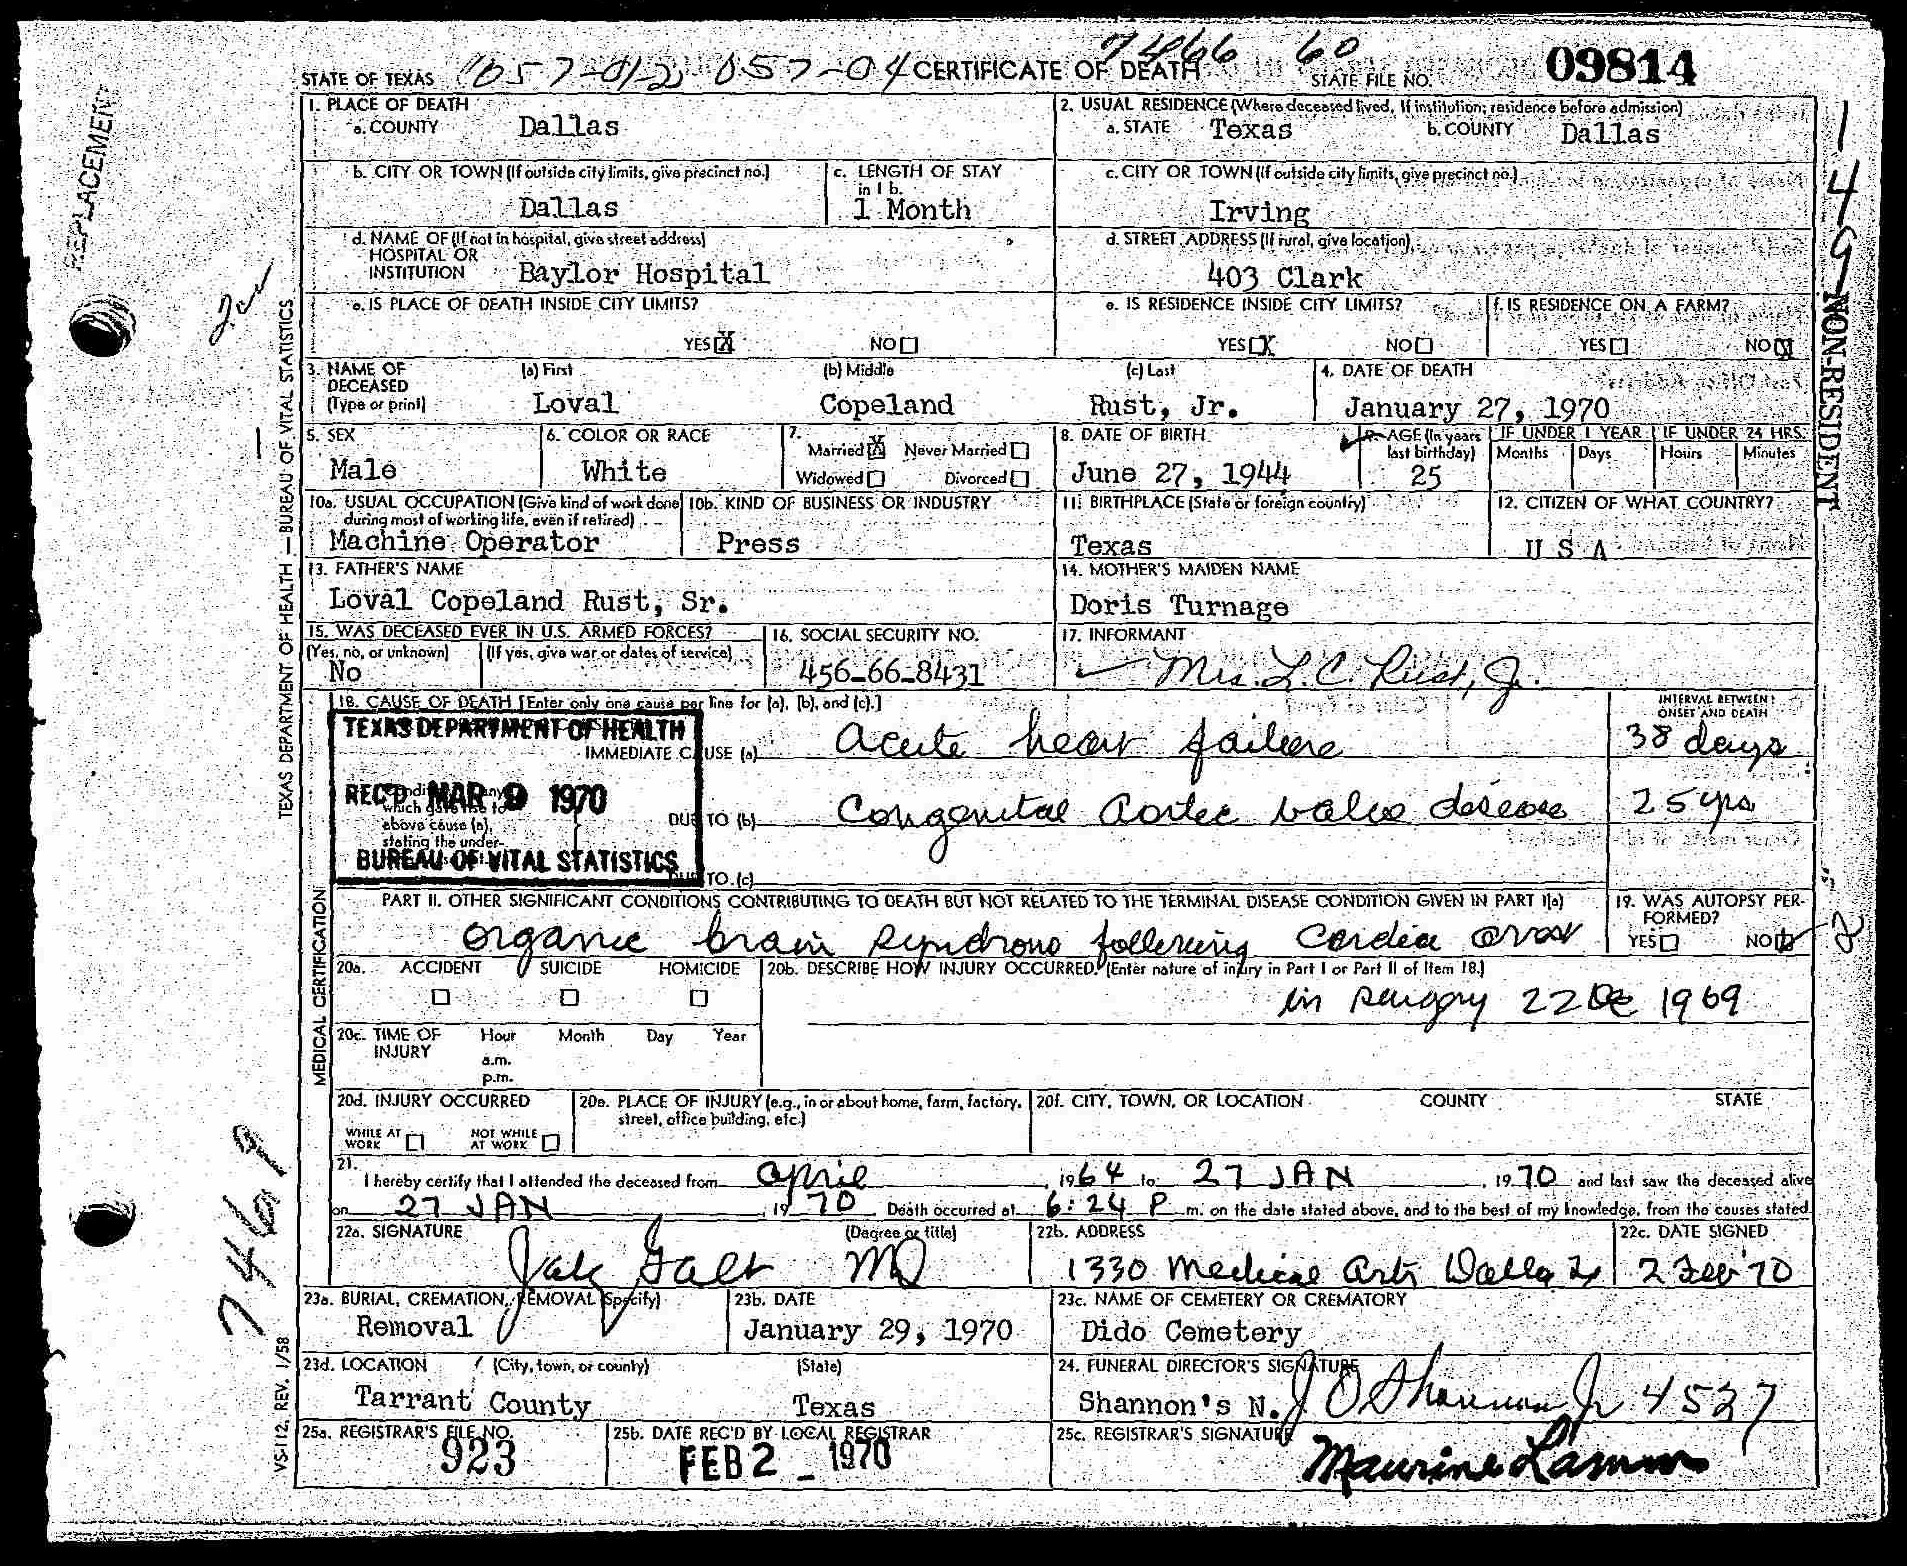 7466 60
STATE OF TEXAS 057-012 057-04 CERTIFICATE OF DEATH STATE FILE NO. 09814
REPLACEMENT
1-49
NON-RESIDENT
TEXAS DEPARTMENT OF HEALTH — BUREAU OF VITAL STATISTICS
1. PLACE OF DEATH
a. COUNTY Dallas
2. USUAL RESIDENCE (Where deceased lived. If institution; residence before admission)
a. STATE Texas b. COUNTY Dallas
b. CITY OR TOWN (If outside city limits, give precinct no.)
Dallas
c. LENGTH OF STAY
in 1 b.
1 Month
c. CITY OR TOWN (If outside city limits, give precinct no.)
Irving
d. NAME OF (If not in hospital, give street address)
HOSPITAL OR
INSTITUTION Baylor Hospital
d. STREET ADDRESS (If rural, give location)
403 Clark
e. IS PLACE OF DEATH INSIDE CITY LIMITS?
YES X NO
e. IS RESIDENCE INSIDE CITY LIMITS?
YES X NO
f. IS RESIDENCE ON A FARM?
YES NO X
3. NAME OF DECEASED
(Type or print)
(a) First (b) Middle (c) Last
Loval Copeland Rust, Jr.
4. DATE OF DEATH
January 27, 1970
5. SEX
Male
6. COLOR OR RACE
White
7. Married X Never Married
Widowed Divorced
8. DATE OF BIRTH
June 27, 1944
9. AGE (In years
last birthday)
25
IF UNDER 1 YEAR IF UNDER 24 HRS.
Months Days Hours Minutes
10a. USUAL OCCUPATION (Give kind of work done
during most of working life, even if retired)
Machine Operator
10b. KIND OF BUSINESS OR INDUSTRY
Press
11. BIRTHPLACE (State or foreign country)
Texas
12. CITIZEN OF WHAT COUNTRY?
U S A
13. FATHER'S NAME
Loval Copeland Rust, Sr.
14. MOTHER'S MAIDEN NAME
Doris Turnage
15. WAS DECEASED EVER IN U.S. ARMED FORCES?
(Yes, no, or unknown) (If yes, give war or dates of service)
No
16. SOCIAL SECURITY NO.
456-66-8431
17. INFORMANT
Mrs. L. C. Rust, Jr.
18. CAUSE OF DEATH [Enter only one cause per line for (a), (b), and (c).]
INTERVAL BETWEEN
ONSET AND DEATH
TEXAS DEPARTMENT OF HEALTH
REC'D MAR 9 1970
BUREAU OF VITAL STATISTICS
IMMEDIATE CAUSE (a) Acute heart failure 38 days
which gave rise to
above cause (a),
stating the under-
DUE TO (b) Congenital aortic valve disease 25 yrs
DUE TO (c)
MEDICAL CERTIFICATION
PART II. OTHER SIGNIFICANT CONDITIONS CONTRIBUTING TO DEATH BUT NOT RELATED TO THE TERMINAL DISEASE CONDITION GIVEN IN PART I(a)
Organic brain syndrome following cardiac arrest
19. WAS AUTOPSY PER-
FORMED?
YES NO
20a. ACCIDENT SUICIDE HOMICIDE
20b. DESCRIBE HOW INJURY OCCURRED. (Enter nature of injury in Part I or Part II of Item 18.)
in surgery 22 Dec 1969
20c. TIME OF
INJURY
Hour Month Day Year
a.m.
p.m.
20d. INJURY OCCURRED
WHILE AT
WORK
NOT WHILE
AT WORK
20e. PLACE OF INJURY (e.g., in or about home, farm, factory,
street, office building, etc.)
20f. CITY, TOWN, OR LOCATION COUNTY STATE
21.
I hereby certify that I attended the deceased from April, 1964 to 27 JAN, 1970 and last saw the deceased alive
on 27 JAN, 1970. Death occurred at 6:24 P m. on the date stated above, and to the best of my knowledge, from the causes stated.
22a. SIGNATURE (Degree or title)
Galt MD
22b. ADDRESS
1330 Medical Arts Dallas
22c. DATE SIGNED
2 Feb '70
23a. BURIAL, CREMATION, REMOVAL (Specify)
Removal
23b. DATE
January 29, 1970
23c. NAME OF CEMETERY OR CREMATORY
Dido Cemetery
23d. LOCATION (City, town, or county) (State)
Tarrant County Texas
24. FUNERAL DIRECTOR'S SIGNATURE
Shannon's N. J O Shannon Jr 4527
25a. REGISTRAR'S FILE NO.
923
25b. DATE REC'D BY LOCAL REGISTRAR
FEB 2 - 1970
25c. REGISTRAR'S SIGNATURE
Maurine Lamm
VS-112, REV. 1/58